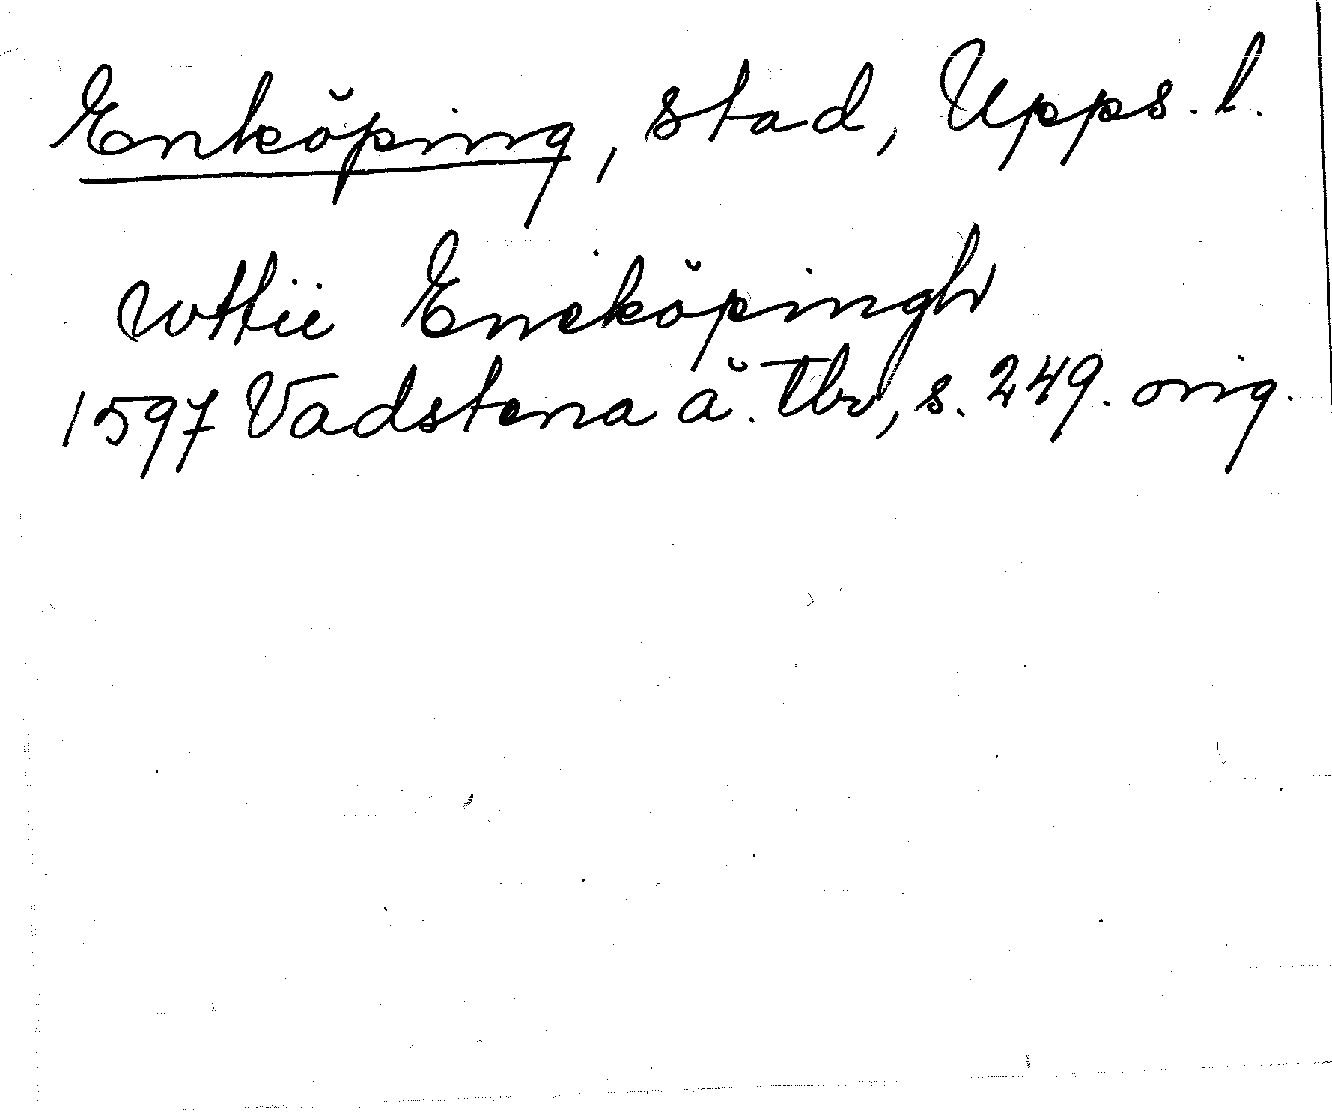 Enköping, stad, Upps. l.
wttii Eneköpingh
1597 Vadstena ä. tb, s. 249. orig.